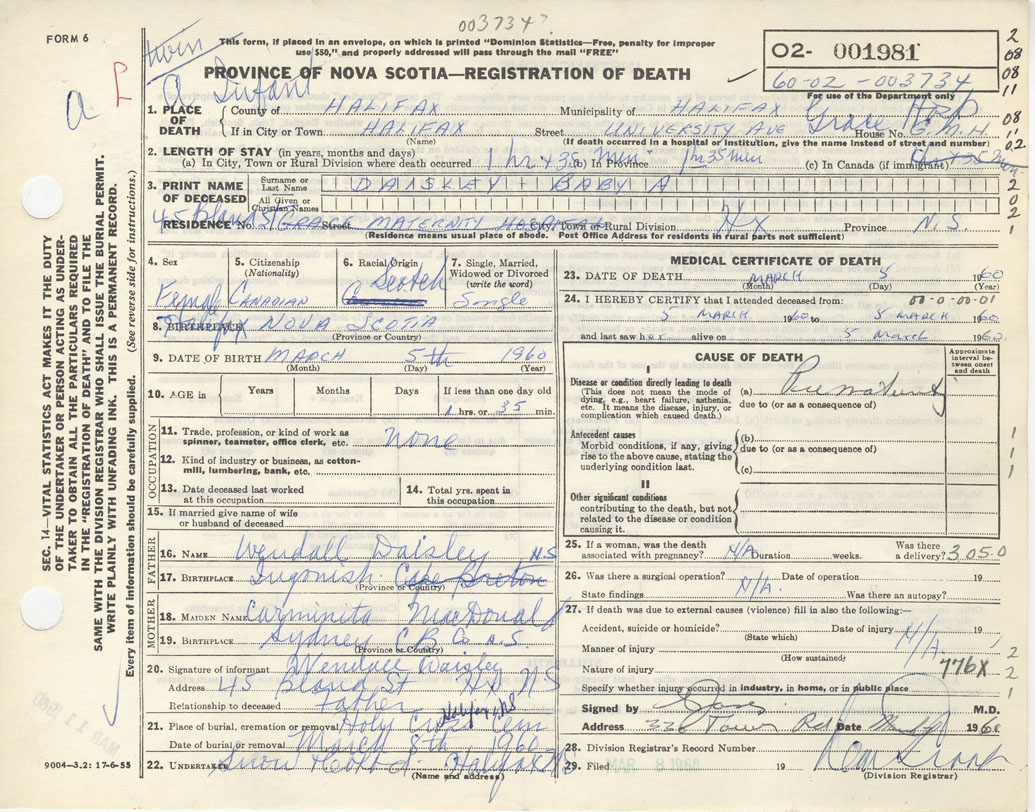 003734
FORM 6
twin
This form, if placed in an envelope, on which is printed "Dominion Statistics—Free, penalty for improper
use $50," and properly addressed will pass through the mail "FREE"
O2- 001981
PROVINCE OF NOVA SCOTIA—REGISTRATION OF DEATH
60-02-003734
For use of the Department only
a Infant
1. PLACE OF DEATH
County of HALIFAX Municipality of HALIFAX
If in City or Town HALIFAX Street UNIVERSITY AVE House No. G.M.H.
(Name) (If death occurred in a hospital or institution, give the name instead of street and number)
Grace
2. LENGTH OF STAY (in years, months and days)
(a) In City, Town or Rural Division where death occurred 1 hr + 35 min. (b) In Province 1 hr 35 min (c) In Canada (if immigrant)
3. PRINT NAME OF DECEASED
Surname or Last Name DAISLEY - BABY A
All Given or Christian Names
45 Bland St
RESIDENCE No. Street GRACE MATERNITY HOSPITAL City, Town or Rural Division Hx Province N.S.
(Residence means usual place of abode. Post Office Address for residents in rural parts not sufficient)
SEC. 14—VITAL STATISTICS ACT MAKES IT THE DUTY
OF THE UNDERTAKER OR PERSON ACTING AS UNDER-
TAKER TO OBTAIN ALL THE PARTICULARS REQUIRED
IN THE "REGISTRATION OF DEATH" AND TO FILE THE
SAME WITH THE DIVISION REGISTRAR WHO SHALL ISSUE THE BURIAL PERMIT.
WRITE PLAINLY WITH UNFADING INK. THIS IS A PERMANENT RECORD.
Every item of information should be carefully supplied. (See reverse side for instructions.)
4. Sex Female
5. Citizenship (Nationality) CANADIAN
6. Racial Origin Scotch
7. Single, Married, Widowed or Divorced (write the word) Single
8. BIRTHPLACE Halifax NOVA SCOTIA
(Province or Country)
9. DATE OF BIRTH MARCH 5th 1960
(Month) (Day) (Year)
10. AGE in Years Months Days If less than one day old
1 hrs. or 35 min.
OCCUPATION
11. Trade, profession, or kind of work as
spinner, teamster, office clerk, etc. none
12. Kind of industry or business, as cotton-
mill, lumbering, bank, etc.
13. Date deceased last worked at this occupation
14. Total yrs. spent in this occupation
15. If married give name of wife
or husband of deceased
FATHER
16. NAME Wendall Daisley
17. BIRTHPLACE Ingonish Cape Breton N.S
(Province or Country)
MOTHER
18. MAIDEN NAME Carminita MacDonald
19. BIRTHPLACE Sydney C.B. Co. N.S
(Province or Country)
20. Signature of informant Wendall Daisley
Address 45 Bland St Hx NS
Relationship to deceased Father
21. Place of burial, cremation or removal Holy Cross Cem Halifax NS
Date of burial or removal March 8th 1960
22. UNDERTAKER Snow & Co Ltd Halifax NS
(Name and address)
9004—3.2: 17-6-55
MAR 11 1960
MEDICAL CERTIFICATE OF DEATH
23. DATE OF DEATH MARCH 5 1960
(Month) (Day) (Year)
24. I HEREBY CERTIFY that I attended deceased from: 00-0-00-01
5 MARCH 1960 to 5 MARCH 1960
and last saw her alive on 5 March 1960
CAUSE OF DEATH
Approximate interval between onset and death
I
Disease or condition directly leading to death
(This does not mean the mode of
dying, e.g., heart failure, asthenia,
etc. It means the disease, injury, or
complication which caused death.)
(a) Prematurity
due to (or as a consequence of)
Antecedent causes
Morbid conditions, if any, giving
rise to the above cause, stating the
underlying condition last.
(b)
due to (or as a consequence of)
(c)
II
Other significant conditions
contributing to the death, but not
related to the disease or condition
causing it.
25. If a woman, was the death
associated with pregnancy? N/A Duration weeks. Was there a delivery? 3050
26. Was there a surgical operation? N/A. Date of operation 19
State findings Was there an autopsy?
27. If death was due to external causes (violence) fill in also the following:—
Accident, suicide or homicide? Date of injury N/A. 19
(State which)
Manner of injury
(How sustained)
Nature of injury 776X
Specify whether injury occurred in industry, in home, or in public place
Signed by M.D.
Address 336 Tower Rd Date 1960
28. Division Registrar's Record Number
29. Filed MAR 8 1960 19
(Division Registrar)